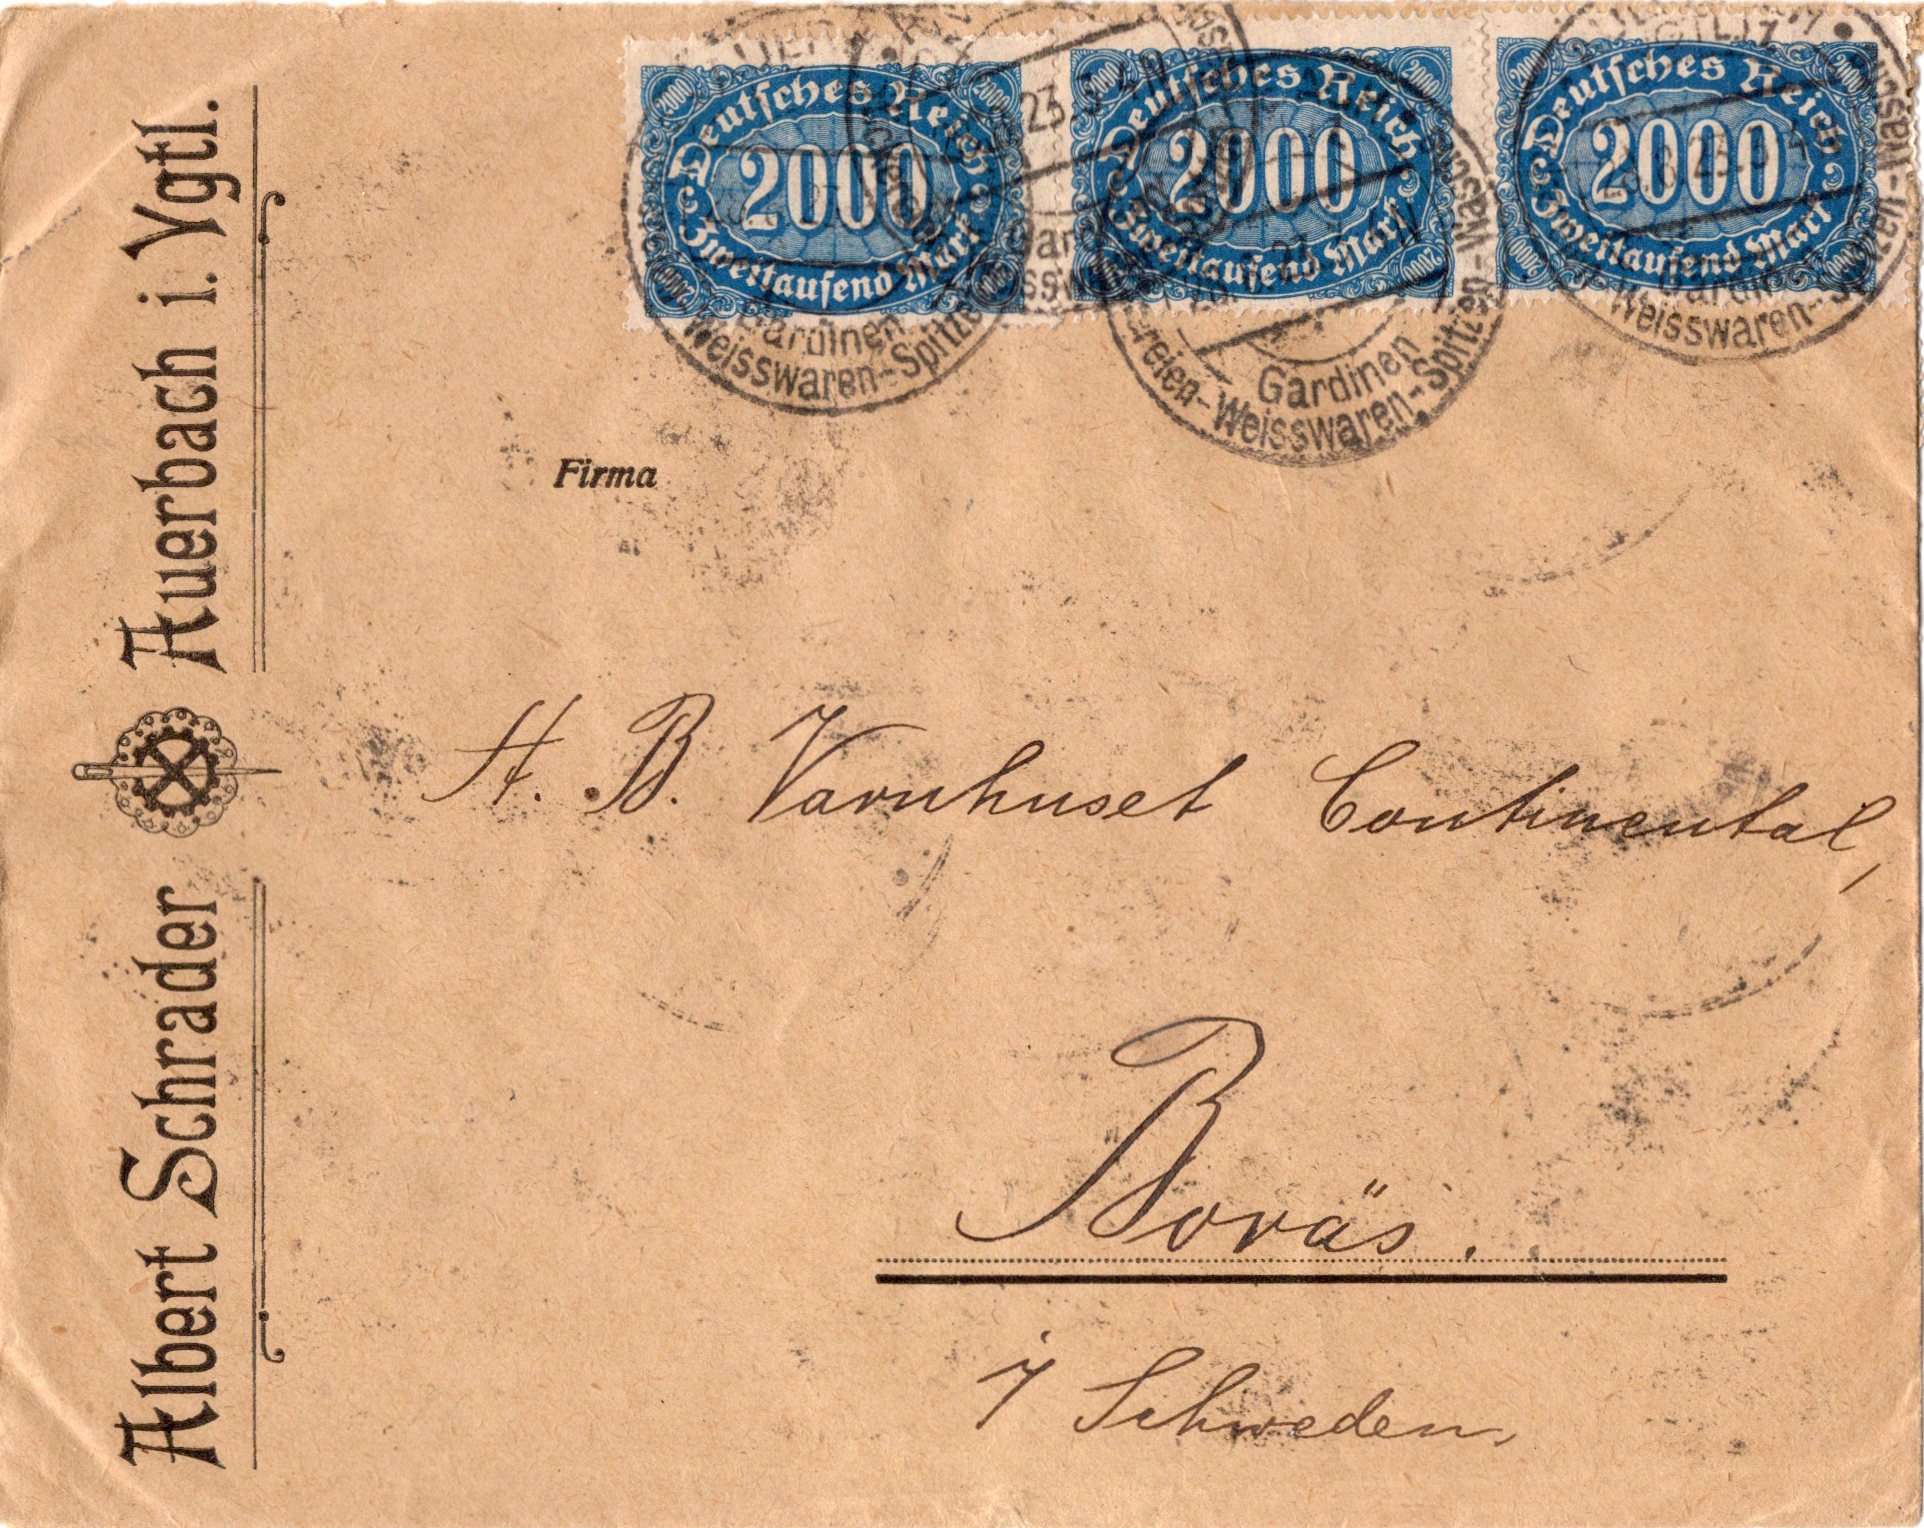 Albert Schrader Auerbach i. Vgtl.
Deutsches Reich
2000
Zweitausend Mark
Deutsches Reich
2000
Zweitausend Mark
Deutsches Reich
2000
Zweitausend Mark
Gardinen
Weisswaren-Spitzen
Gardinen
Weisswaren-Spitzen-
Weisswaren-Spitzen-
Firma
A. B. Varnhuset Continental,
Boräs.
i/ Schweden.